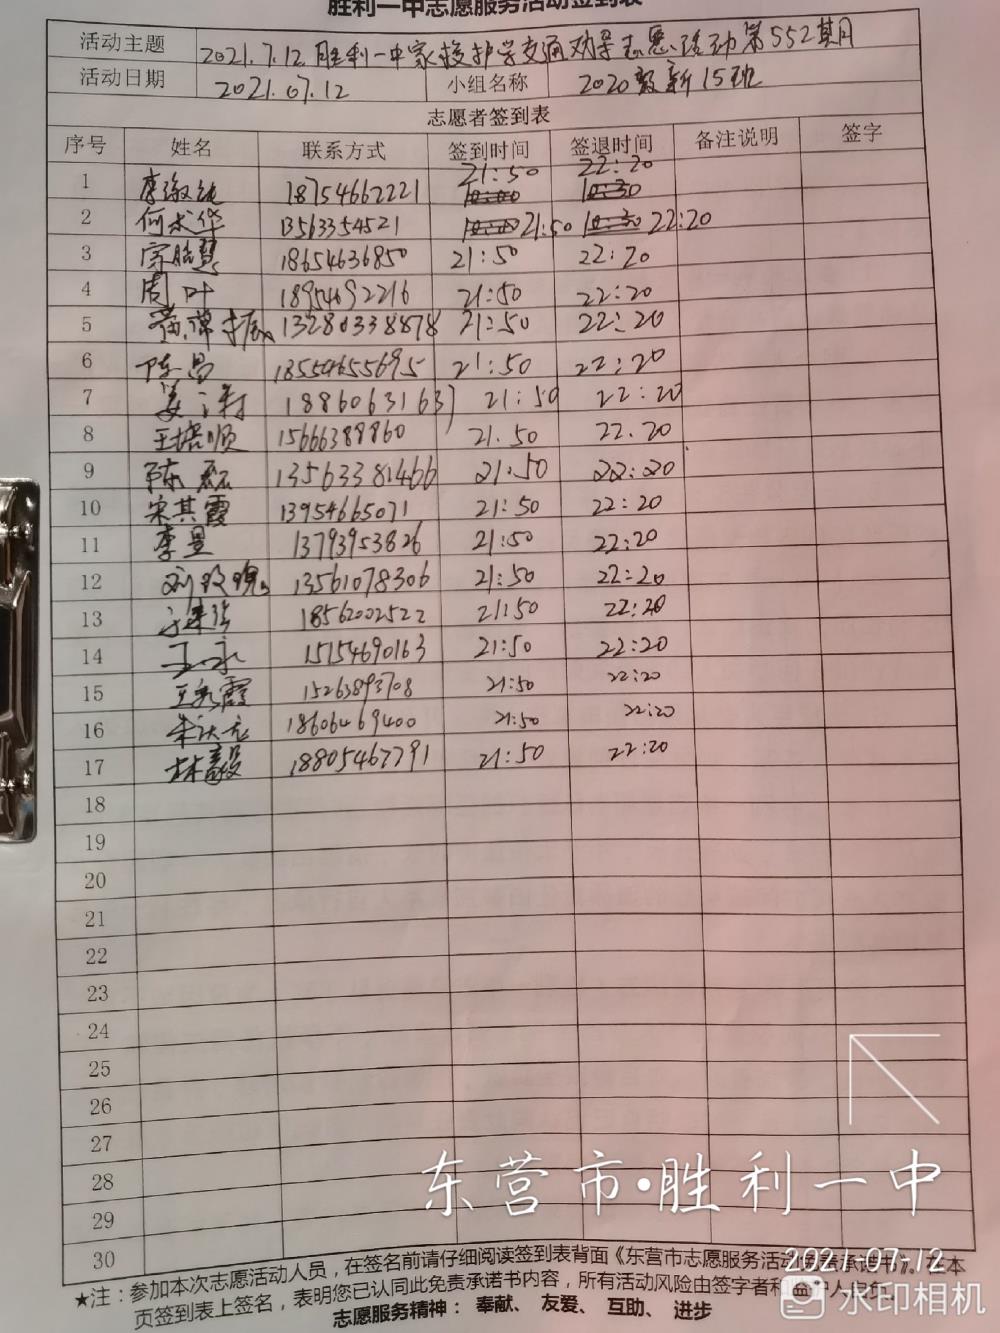 胜利一中志愿服务活动签到表
活动主题 2021.7.12胜利一中家校护学交通劝导志愿活动第552期
活动日期 2021.07.12 小组名称 2020级新15班
志愿者签到表
序号 姓名 联系方式 签到时间 签退时间 备注说明 签字
1 18754662221 21:50 22:20
2 何术华 13563354521 21:50 22:20
3 18654636850 21:50 22:20
4 周叶 18954692216 21:50 22:20
5 13280338878 21:50 22:20
6 陈昌 18554655695 21:50 22:20
7 18860631637 21:50 22:20
8 王培顺 15666388860 21.50 22.20
9 陈磊 13563381466 21:50 22:20
10 宋其霞 13954665071 21:50 22:20
11 李昱 13793953826 21:50 22:20
12 刘玫瑰 13561078306 21:50 22:20
13 18562002522 21:50 22:20
14 王永 15154690163 21:50 22:20
15 王彩霞 15263893708 21:50 22:20
16 18606469400 21:50 22:20
17 林毅 18805467791 21:50 22:20
18
19
20
21
22
23
24
25
26
27
28
29
30
东营市•胜利一中
2021.07.12
水印相机
★注：参加本次志愿活动人员，在签名前请仔细阅读签到表背面《东营市志愿服务活动免责承诺书》。在本
页签到表上签名，表明您已认同此免责承诺书内容，所有活动风险由签字者和监护人自负。
志愿服务精神： 奉献、 友爱、 互助、 进步